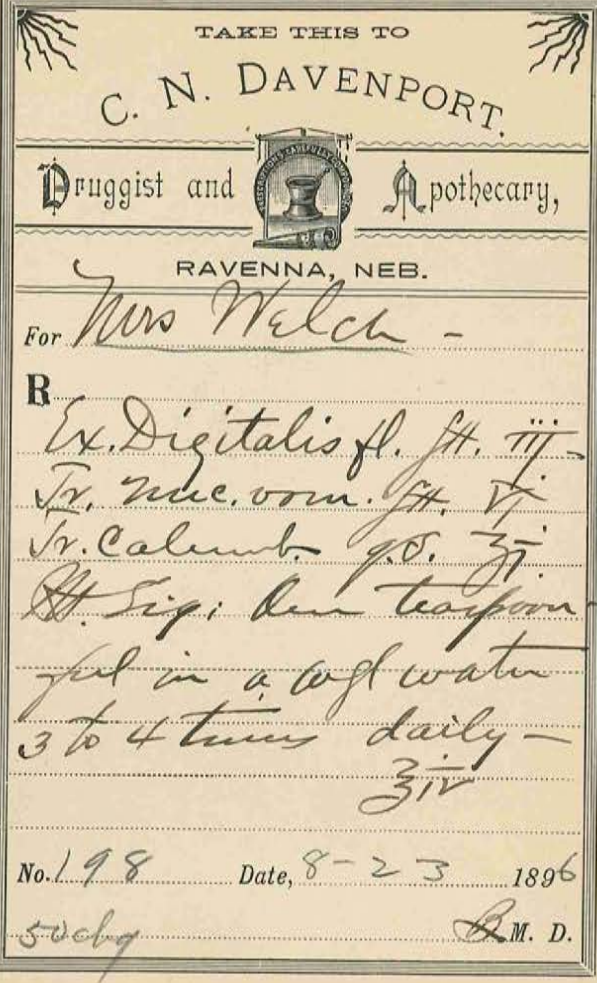 TAKE THIS TO
C. N. DAVENPORT.
Druggist and Apothecary,
PRESCRIPTIONS CAREFULLY COMPOUNDED
RAVENNA, NEB.
For Mrs Welch -
R
Ex. Digitalis fl. gtt. iij
Tr. Nuc. vom. gtt. vj
Tr. Calumb. q.s. ʒj
Sig: One teaspoon-
ful in a water
3 to 4 times daily -
ʒiv
No. 198 Date, 8-23 1896
50 chg M. D.